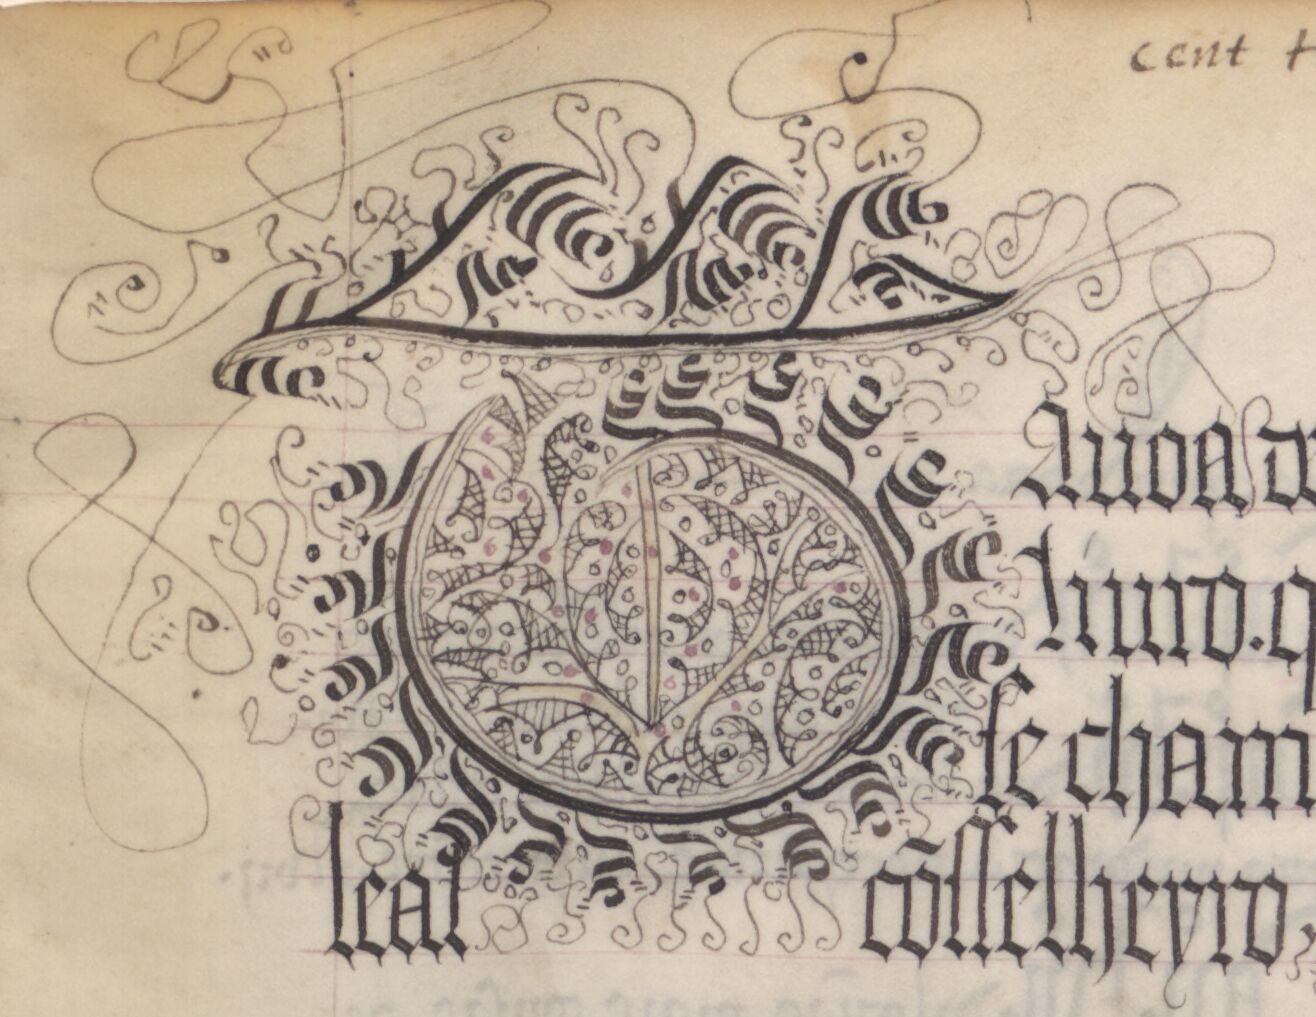 cent
Tauoa
liuro. q
se cham
leal cõsselheyro,